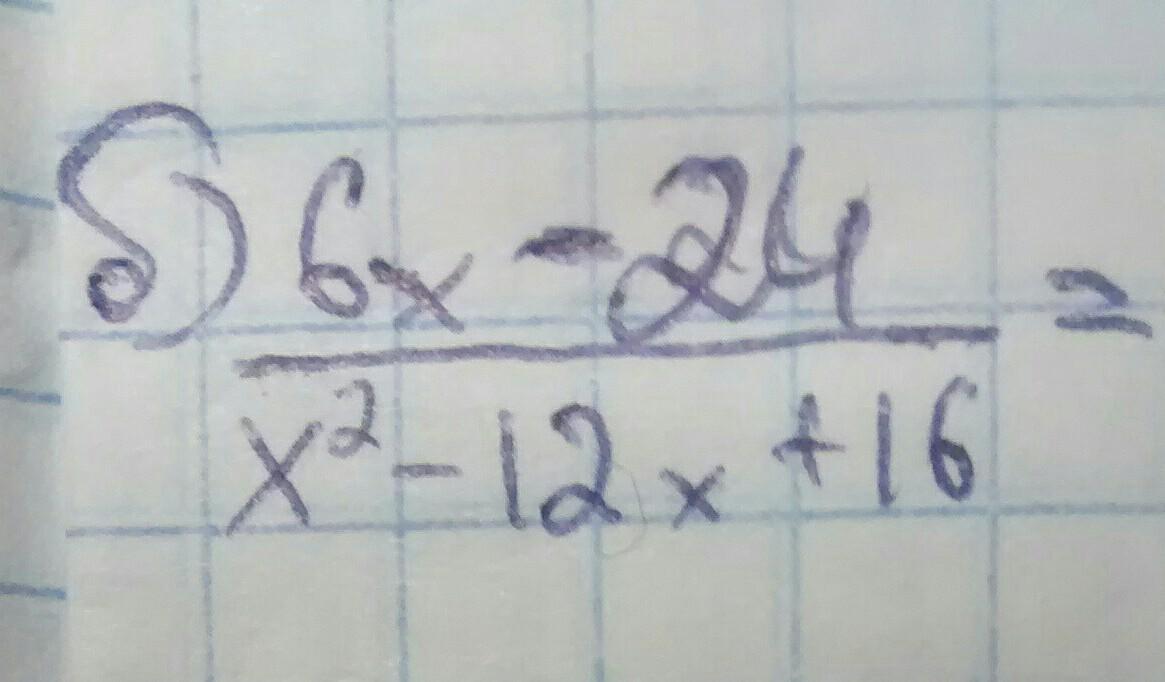 б) 6x - 24 =
x² - 12x + 16